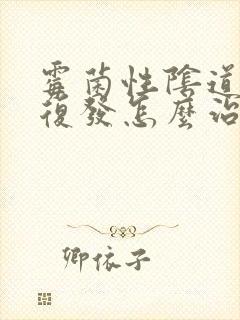 霉菌性陰道
復發怎麼治
卿依子